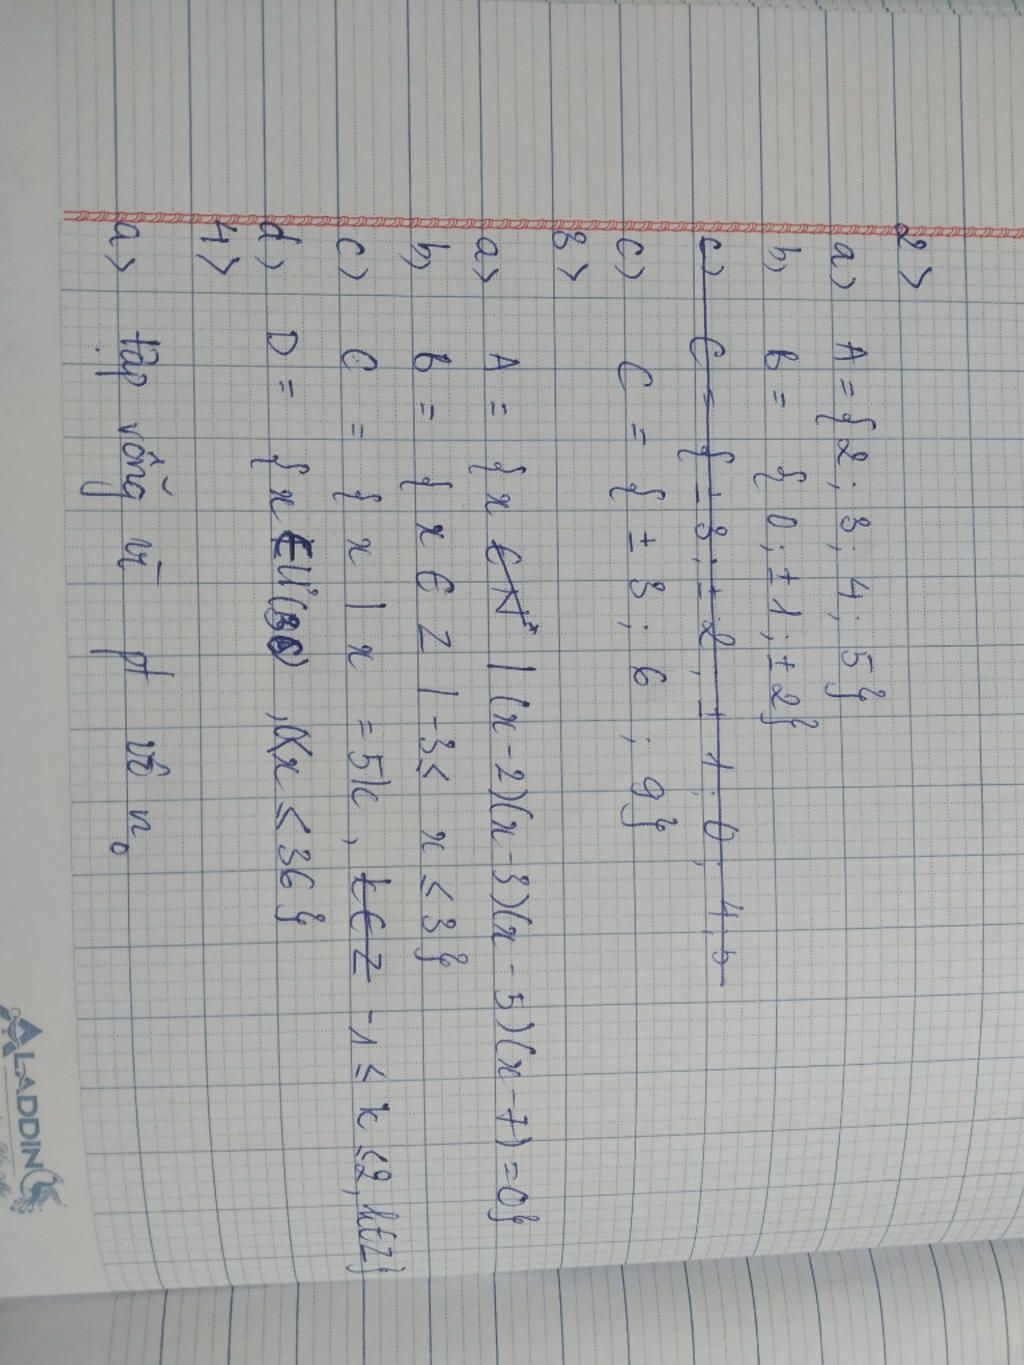 2>
a) A = {2; 3; 4; 5}
b) B = {0; ±1; ±2}
c) C = {±3; ±2; ±1; 0; 4,5
c) C = {±3; 6; 9}
3>
a) A = {x ∈ N* | (x-2)(x-3)(x-5)(x-7) = 0}
b) B = {x ∈ Z | -3 ≤ x ≤ 3}
c) C = {x | x = 5k, k ∈ Z -1 ≤ k ≤ 2, k ∈ Z}
d) D = {x , x ≤ 36}
4>
a) tập rỗng vì pt vô n₀
ALADDIN